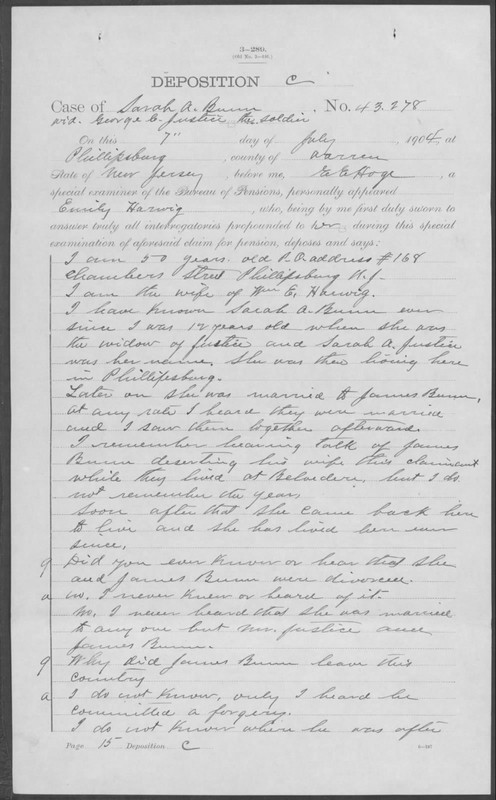 3—280.
DEPOSITION C
Case of Sarah A. Bunn, No. 43.278
wid. George C. Justice the soldier
On this 7" day of July, 1904, at
Phillipsburg, county of Warren
State of New Jersey, before me, E E Hoge, a
special examiner of the Bureau of Pensions, personally appeared
Emily Harwig, who, being by me first duly sworn to
answer truly all interrogatories propounded to her during this special
examination of aforesaid claim for pension, deposes and says:
I am 50 years old P.O. address #168
Chambers Street Phillipsburg N.J.
I am the wife of Wm E. Harwig.
I have known Sarah A. Bunn ever
since I was 12 years old when she was
the widow of Justice and Sarah A. Justice
was her name. She was then living here
in Phillipsburg.
Later on she was married to James Bunn,
at any rate I heard they were married
and I saw them together afterward.
I remember hearing talk of James
Bunn deserting his wife this claimant
while they lived at Belvidere, but I do
not remember the years
Soon after that she came back here
to live and she has lived here ever
since.
Q Did you ever know or hear that she
and James Bunn were divorced.
A No. I never knew or heard of it.
No. I never heard that she was married
to any one but Mr. Justice and
James Bunn.
Q Why did James Bunn leave this
country
A I do not know, only I heard he
committed a forgery.
I do not know where he was after
Page 15 Deposition C